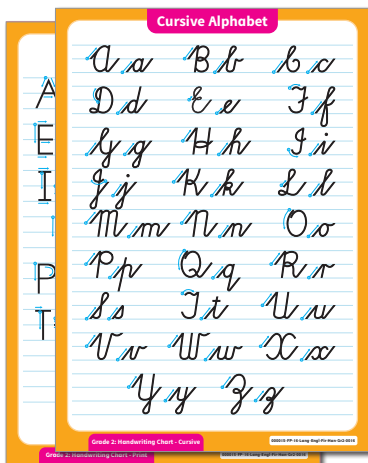 Cursive Alphabet
A a B b C c
D d E e F f
G g H h I i
J j K k L l
M m N n O o
P p Q q R r
S s T t U u
V v W w X x
Y y Z z
Grade 2: Handwriting Chart - Cursive
A
E
I
P
T
Grade 2: Handwriting Chart - Print